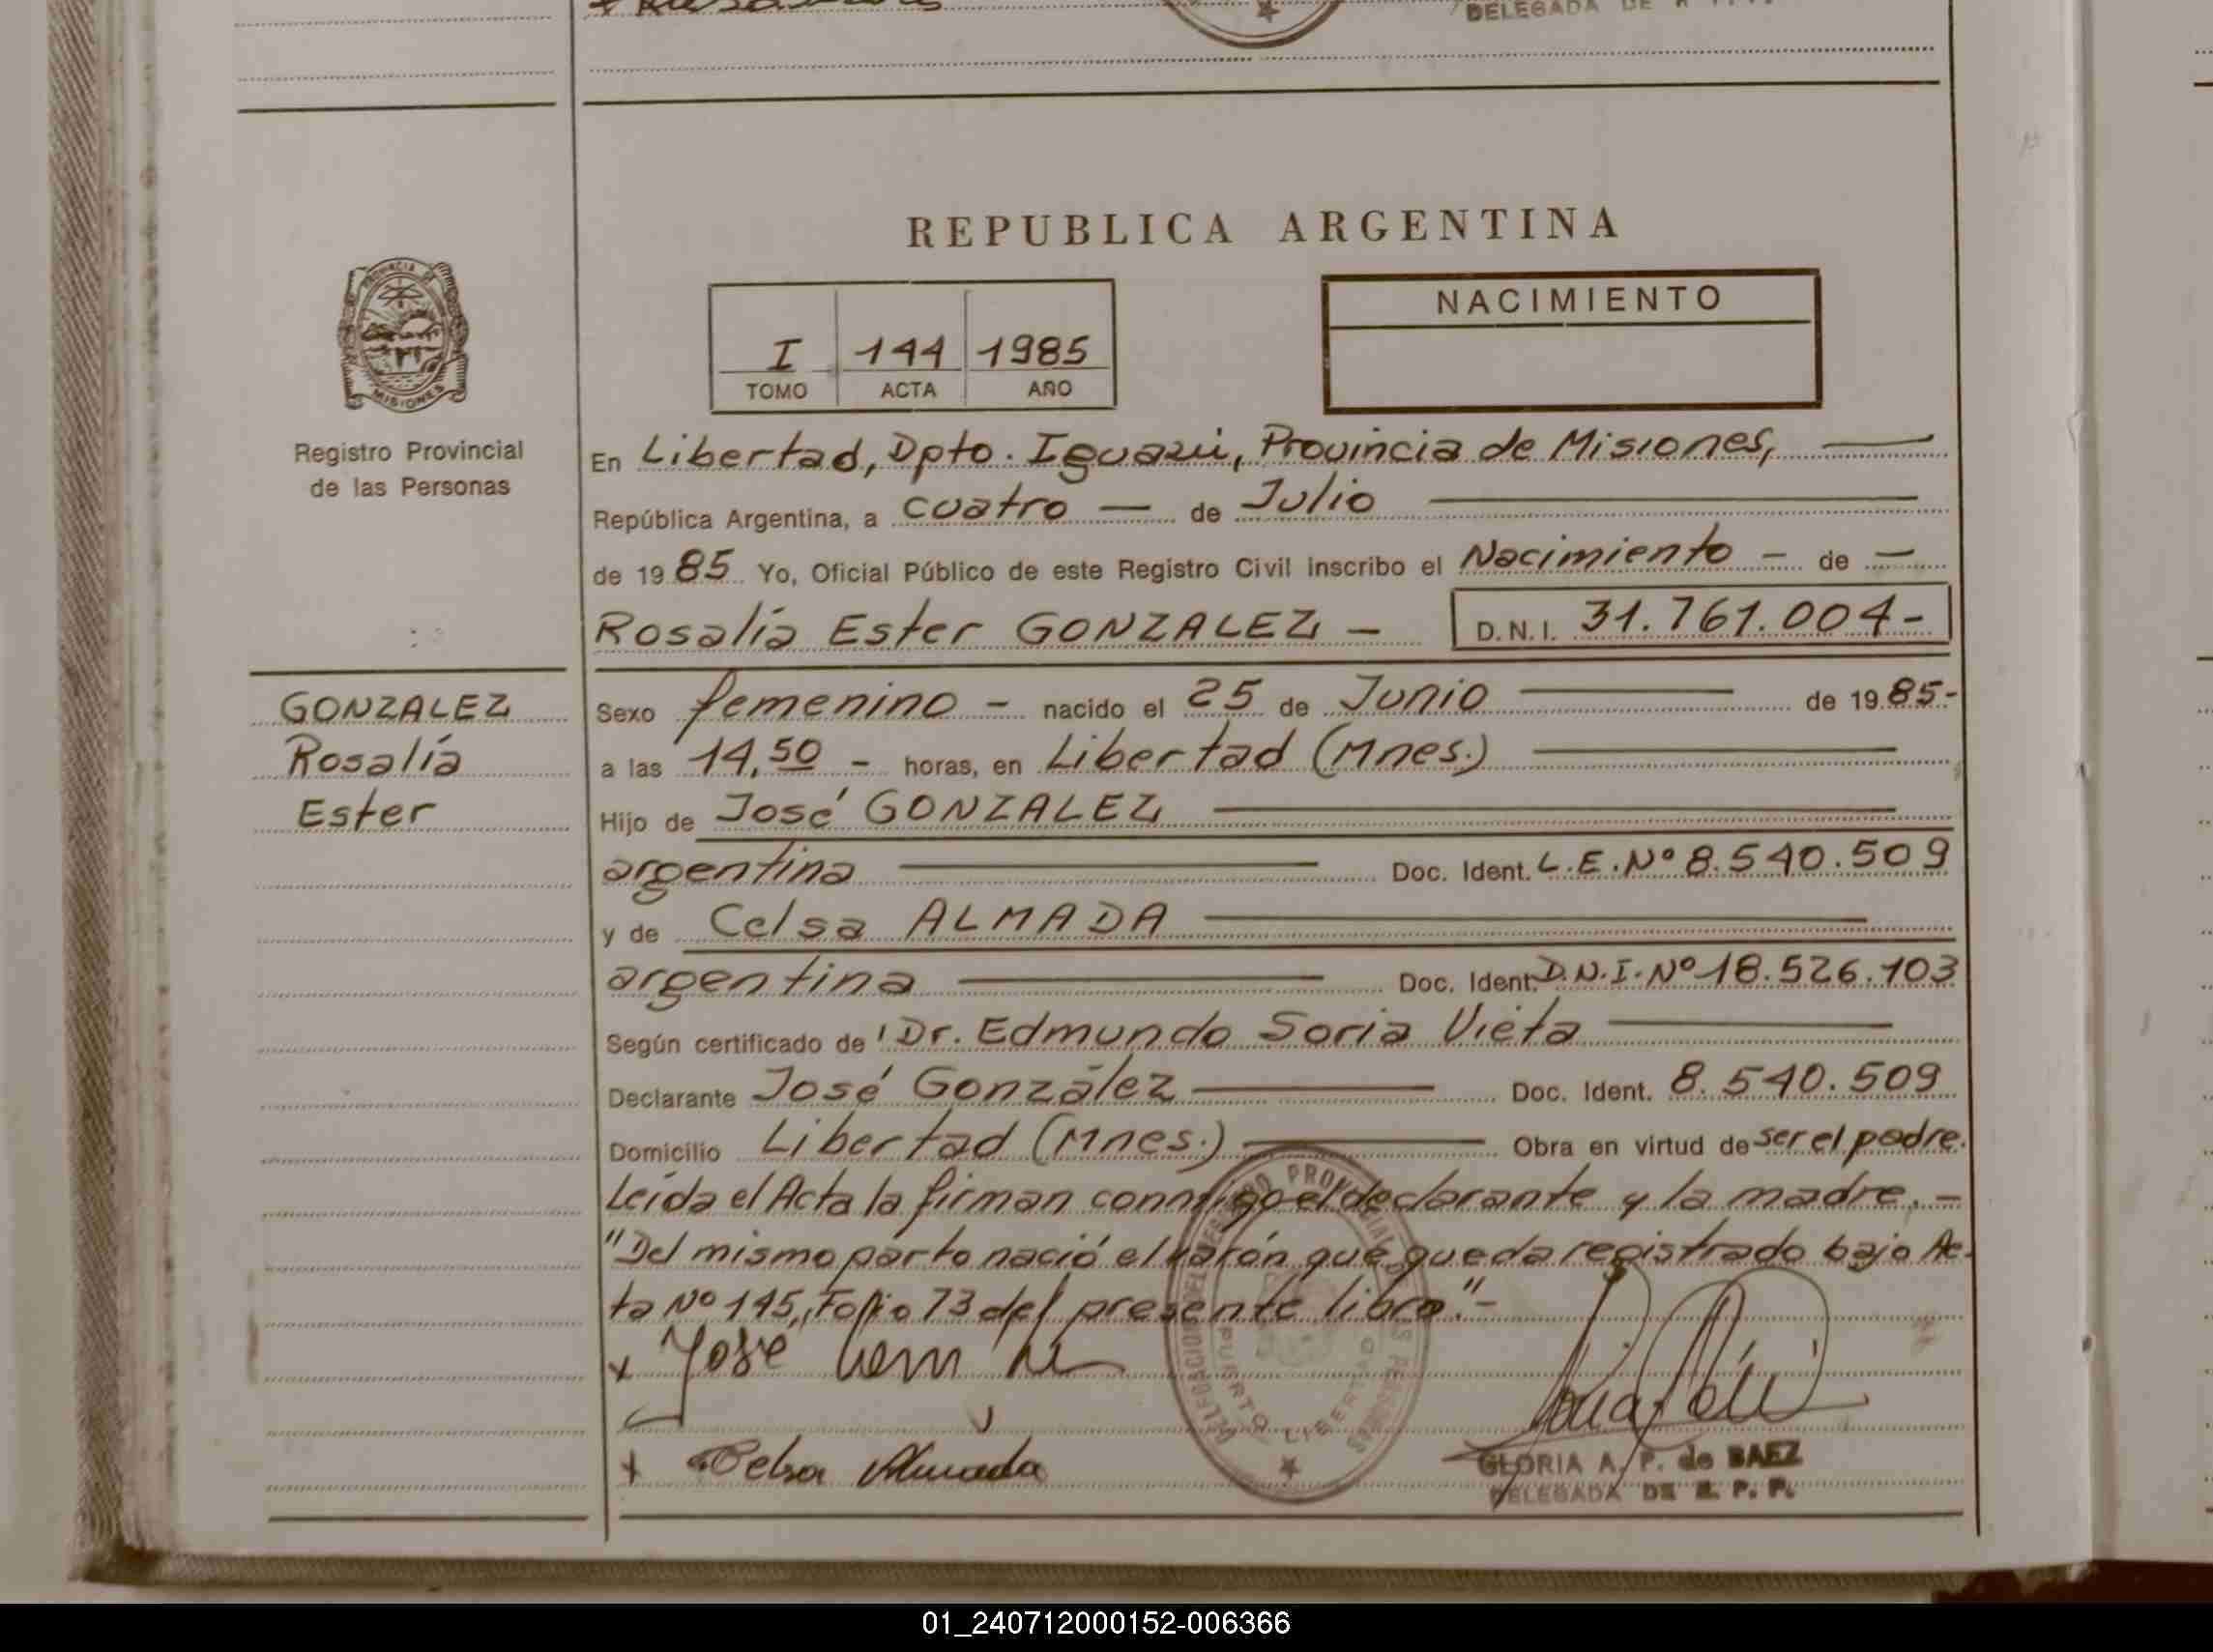 DELEGADA DE
REPUBLICA ARGENTINA
PROVINCIA DE
MISIONES
Registro Provincial
de las Personas
I 144 1985
TOMO ACTA AÑO
NACIMIENTO
En Libertad, Dpto. Iguazú, Provincia de Misiones,
República Argentina, a cuatro — de Julio
de 1985 Yo, Oficial Público de este Registro Civil inscribo el Nacimiento - de —
Rosalía Ester GONZALEZ — D.N.I. 31.761.004-
GONZALEZ
Rosalía
Ester
Sexo femenino - nacido el 25 de Junio de 1985-
a las 14,50 - horas, en Libertad (Mnes.)
Hijo de José GONZALEZ
argentina Doc. Ident. L.E.Nº 8.540.509
y de Celsa ALMADA
argentina Doc. Ident. D.N.I. Nº 18.526.103
Según certificado de Dr. Edmundo Soria Vieta
Declarante José González Doc. Ident. 8.540.509
Domicilio Libertad (Mnes.) Obra en virtud de ser el padre.
Leída el Acta la firman conmigo el declarante y la madre.-
"Del mismo parto nació el varón que queda registrado bajo Ac-
ta Nº 145, Folio 73 del presente libro."-
x José
x Celsa Almada
PUERTO LIBERTAD
GLORIA A. P. de BAEZ
DELEGADA DE R. P. P.
01_240712000152-006366